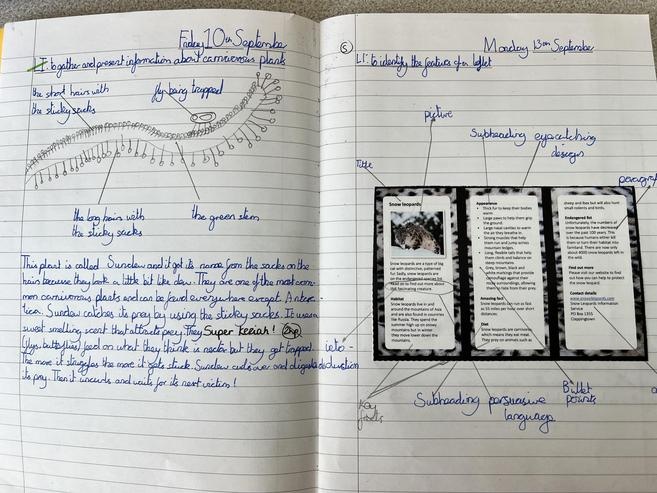 Friday 10th September
L.I: to gather and present information about carnivorous plants
the short hairs with
the sticky sacks
fly being trapped
the long hairs with
the sticky sacks
the green stem
This plant is called Sundew and it got its name from the sacks on the
hairs because they look a little bit like dew. They are one of the most com-
mon carnivorous plants and can be found everywhere except Antarc-
tica. Sundew catches its prey by using the sticky sacks. It uses a
sweet smelling scent that attracts prey. They Super Keeiah! 2hp
(flys, butterflies) feed on what they think is nectar but they get trapped.
the more it struggles the more it gets stuck. Sundew curls over and digests
its prey. Then it uncurls and waits for its next victim!
5
Monday 13th September
L.I: to identify the features of a leaflet
picture
Subheading
eyecatching
design
Title
paragraph
Snow leopards
Snow leopards are a type of big
cat with distinctive, patterned
fur. Sadly, snow leopards are
on the endangered species list.
Read on to find out more about
this fascinating creature.
Habitat
Snow leopards live in and
around the mountains of Asia
and are also found in countries
like Russia. They spend the
summer high up on snowy
mountains but in winter
they move lower down the
mountains.
Appearance
• Thick fur to keep their bodies
warm
• Large paws to help them grip
the ground.
• Large nasal cavities to warm
the air they breathe in.
• Strong muscles that help
them run and jump across
mountain ledges.
• Long, flexible tails that help
them climb and balance on
steep mountains.
• Grey, brown, black and
white markings that provide
camouflage against their
rocky surroundings, allowing
them to hide from their prey.
Amazing fact
Snow leopards can run as fast
as 55 miles per hour over short
distances.
Diet
Snow leopards are carnivores
which means they eat meat.
They prey on animals such as
sheep and ibex but will also hunt
small rodents and birds.
Endangered list
Unfortunately, the numbers of
snow leopards have decreased
over the past 100 years. This
is because humans either kill
them or turn their habitat into
farmland. There are now only
about 4000 snow leopards left in
the wild.
Find out more
Please visit our website to find
out how you can help to protect
the snow leopard.
Contact details
www.snowleopards.com
Snow Leopards Information
Service
PO Box 1355
intro-
duction
Key
facts
Subheading
persuasive
language
Bullet
points